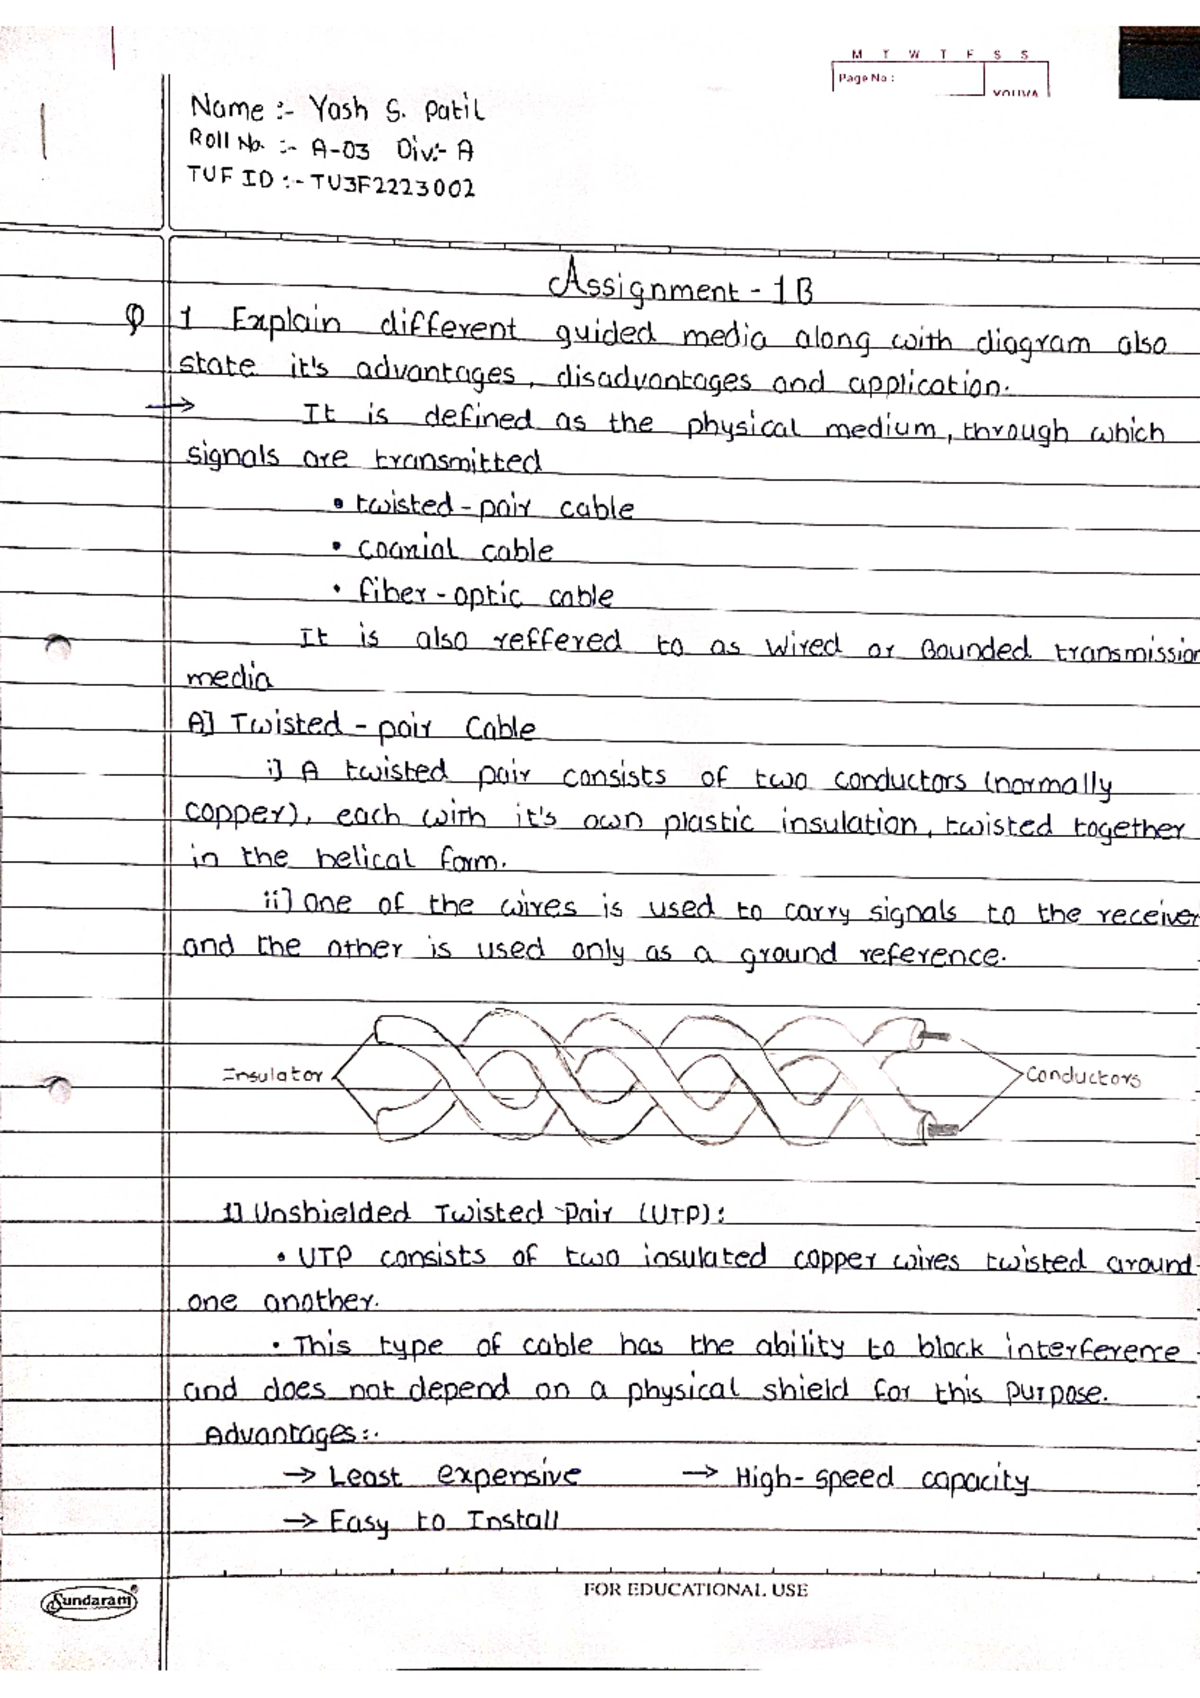 M T W T F S S
Page No :
YOUVA
Name :- Yash S. Patil
Roll No. :- A-03 Div:- A
TUF ID :- TU3F2223002
Assignment - 1B
Q 1 Explain different guided media along with diagram also
state it's advantages, disadvantages and application.
→ It is defined as the physical medium, through which
signals are transmitted
• twisted-pair cable
• coaxial cable
• fiber-optic cable
It is also reffered to as Wired or Bounded transmission
media
A] Twisted-pair Cable
i] A twisted pair consists of two conductors (normally
copper), each with it's own plastic insulation, twisted together
in the helical form.
ii] One of the wires is used to carry signals to the receiver
and the other is used only as a ground reference.
Insulator
Conductors
1] Unshielded Twisted Pair (UTP):
• UTP consists of two insulated copper wires twisted around
one another.
• This type of cable has the ability to block interference
and does not depend on a physical shield for this purpose.
Advantages:-
→ Least expensive → High-speed capacity
→ Easy to Install
Sundaram
FOR EDUCATIONAL USE